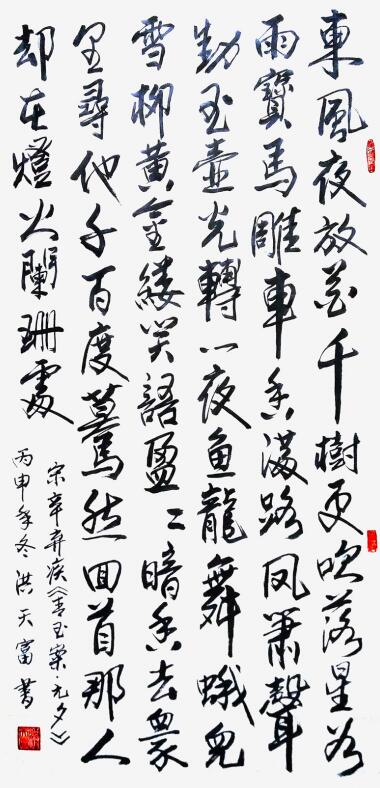 東風夜放花千樹更吹落星如
雨寶馬雕車香滿路鳳簫聲
動玉壺光轉一夜魚龍舞蛾兒
雪柳黃金縷笑語盈〻暗香去衆
里尋他千百度驀然回首那人
却在燈火闌珊處
宋辛弃疾《青玉案·元夕》
丙申年冬洪天富書